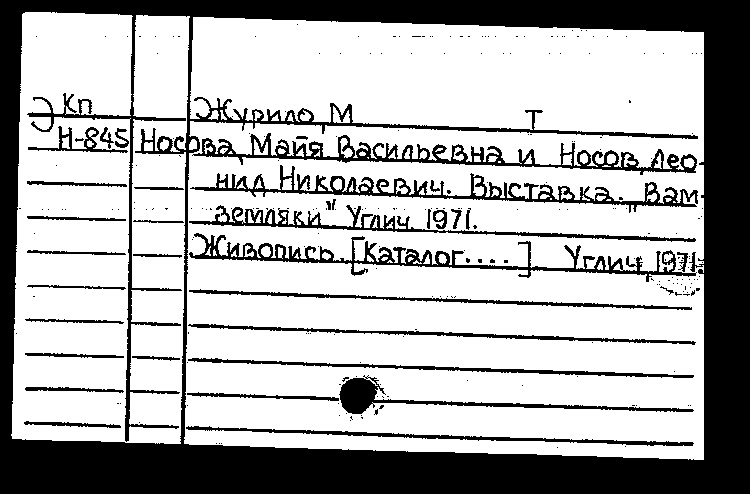 Э Кп Журило, М Т
Н-845 Носова, Майя Васильевна и Носов, Лео-
нид Николаевич. Выставка. „Вам-
земляки" Углич. 1971.
Живопись. [Каталог....] Углич, 1971.